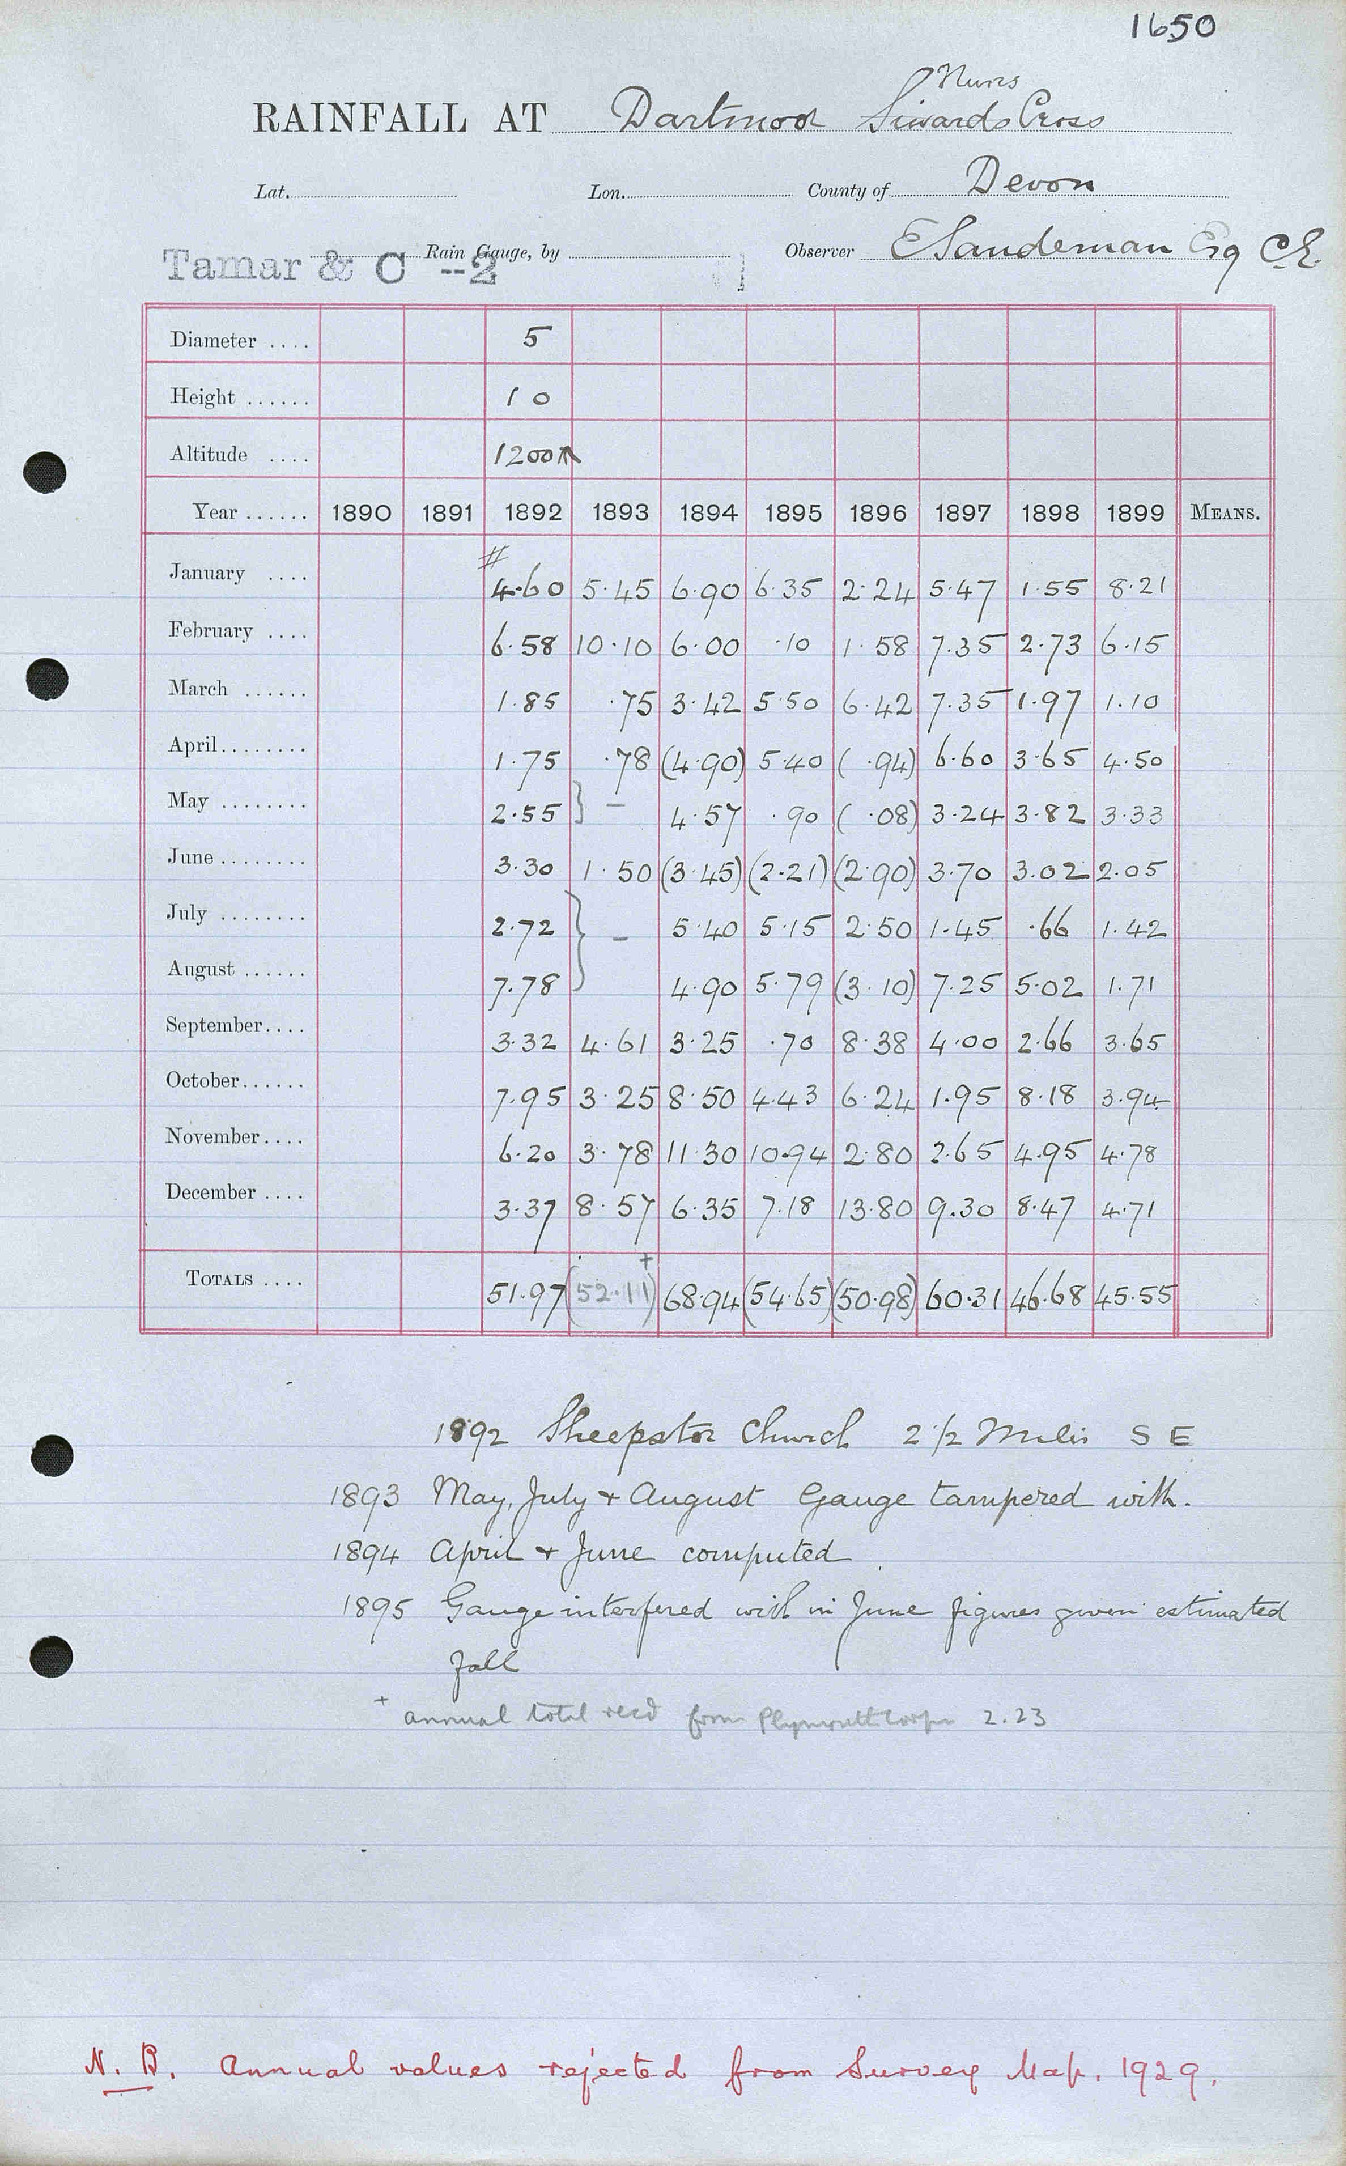 1650
Nuns
RAINFALL AT Dartmoor Siwards Cross
Lat. Lon. County of Devon
Tamar & C --2 Rain Gauge, by Observer E Sandeman Esq C.E.
Diameter .... 5
Height ...... 10
Altitude .... 1200
Year ...... 1890 1891 1892 1893 1894 1895 1896 1897 1898 1899 MEANS.
#
January .... 4.60 5.45 6.90 6.35 2.24 5.47 1.55 8.21
February .... 6.58 10.10 6.00 .10 1.58 7.35 2.73 6.15
March ...... 1.85 .75 3.42 5.50 6.42 7.35 1.97 1.10
April........ 1.75 .78 (4.90) 5.40 ( .94) 6.60 3.65 4.50
May ........ 2.55 } – 4.57 .90 ( .08) 3.24 3.82 3.33
June ........ 3.30 1.50 (3.45) (2.21) (2.90) 3.70 3.02 2.05
July ........ 2.72 } – 5.40 5.15 2.50 1.45 .66 1.42
August ...... 7.78 4.90 5.79 (3.10) 7.25 5.02 1.71
September.... 3.32 4.61 3.25 .70 8.38 4.00 2.66 3.65
October...... 7.95 3.25 8.50 4.43 6.24 1.95 8.18 3.94
November.... 6.20 3.78 11.30 10.94 2.80 2.65 4.95 4.78
December .... 3.37 8.57 6.35 7.18 13.80 9.30 8.47 4.71
TOTALS .... 51.97 (52.11)+ 68.94 (54.65) (50.98) 60.31 46.68 45.55
1892 Sheepstor Church 2 1/2 Miles S E
1893 May, July + August Gauge tampered with.
1894 April + June computed
1895 Gauge interfered with in June figures given estimated
fall
+ annual total recd from Plymouth Corpn 2.23
N.B. Annual values rejected from Survey Map. 1929.